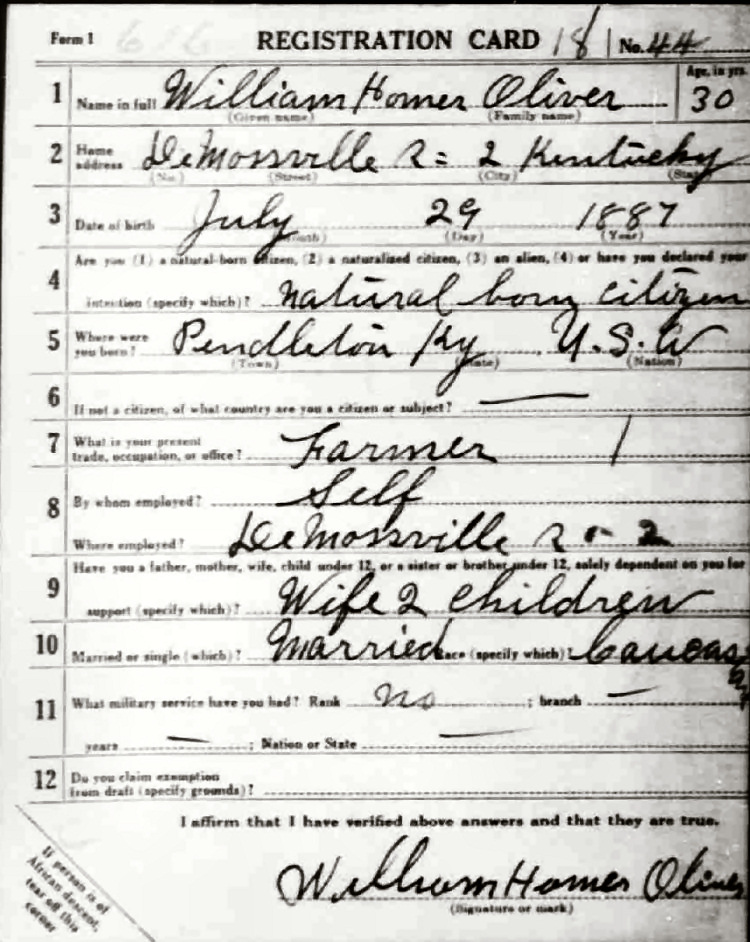 Form 1 616 REGISTRATION CARD 181 No. 44
1 Name in full William Homer Oliver Age, in yrs. 30
(Given name) (Family name)
2 Home address DeMossville R = 2 Kentucky
(No.) (Street) (City) (State
3 Date of birth July 29 1887
(Month) (Day) (Year)
4 Are you (1) a natural-born citizen, (2) a naturalized citizen, (3) an alien, (4) or have you declared your
intention (specify which)? natural born citizen
5 Where were you born? Pendleton Ky U.S.A
(Town) (State) (Nation)
6 If not a citizen, of what country are you a citizen or subject? —
7 What is your present trade, occupation, or office? Farmer 1
8 By whom employed? Self
Where employed? DeMossville R - 2
9 Have you a father, mother, wife, child under 12, or a sister or brother under 12, solely dependent on you for
support (specify which)? Wife 2 children
10 Married or single (which)? Married Race (specify which)? Caucas
11 What military service have you had? Rank no ; branch —
years — ; Nation or State —
12 Do you claim exemption from draft (specify grounds)?
I affirm that I have verified above answers and that they are true.
William Homer Oliver
(Signature or mark)
If person is of
African descent,
tear off this
corner